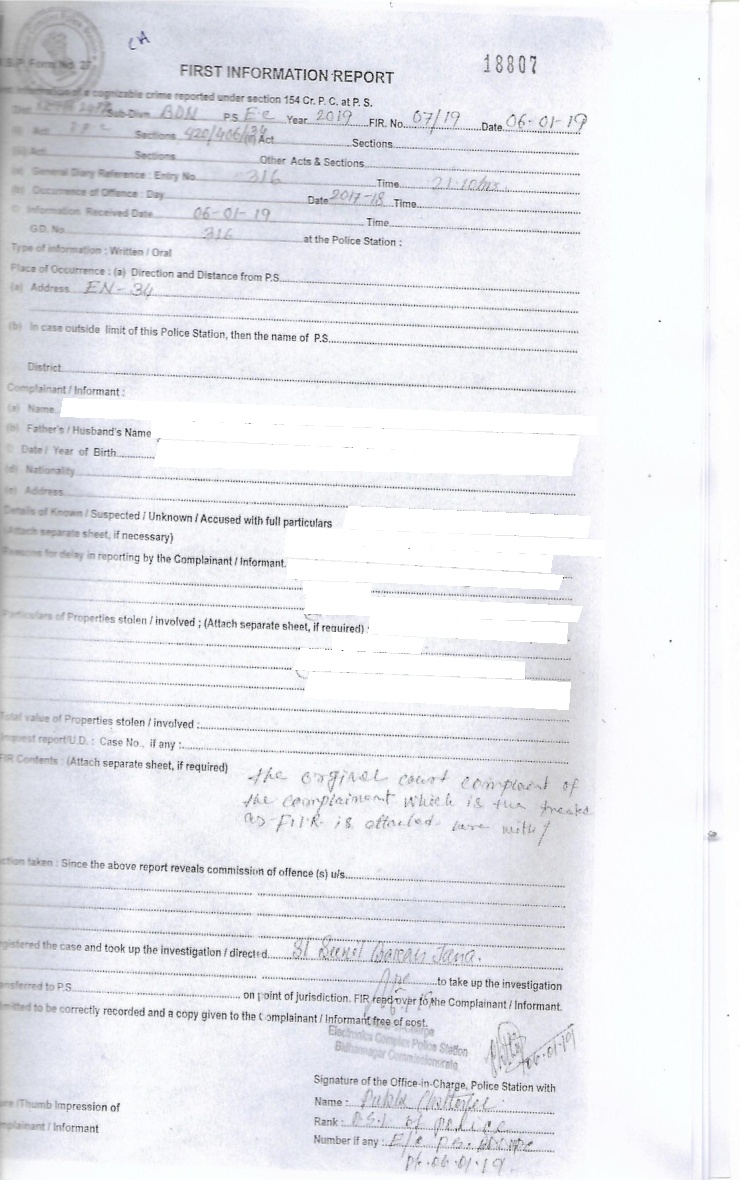 CA
B.P. Form No. 27
18807
FIRST INFORMATION REPORT
of a cognizable crime reported under section 154 Cr. P. C. at P. S.
Sub-Divn. BDN P.S. E.C Year 2019 FIR. No. 07/19 Date 06-01-19
(i) Act I P C Sections 420/406/34 Act Sections
(iii) Act Sections Other Acts & Sections
(a) General Diary Reference : Entry No. 316 Time 21.10 hrs.
(b) Occurrence of Offence : Day Date 2017-18 Time
Information Received Date 06-01-19 Time
G.D. No. 316 at the Police Station :
Type of information : Written / Oral
Place of Occurrence : (a) Direction and Distance from P.S.
(a) Address EN-34
(b) In case outside limit of this Police Station, then the name of P.S.
District
Complainant / Informant :
(a) Name
(b) Father's / Husband's Name
Date / Year of Birth
(d) Nationality
(e) Address
Details of Known / Suspected / Unknown / Accused with full particulars
(Attach separate sheet, if necessary)
Reasons for delay in reporting by the Complainant / Informant.
Particulars of Properties stolen / involved ; (Attach separate sheet, if required) :
Total value of Properties stolen / involved :
Inquest report/U.D. : Case No., if any :
FIR Contents : (Attach separate sheet, if required)
the orginal court complaint of
the complaiment which is the treats
as FIR is attached here with/
ction taken : Since the above report reveals commission of offence (s) u/s.
gistered the case and took up the investigation / directed SI Sunil Baran Jana.
to take up the investigation
ansferred to P.S. on point of jurisdiction. FIR read over to the Complainant / Informant.
mitted to be correctly recorded and a copy given to the Complainant / Informant free of cost.
Electronics Complex Police Station
Bidhannagar Commissionerate
06.01.19
Signature of the Office-in-Charge, Police Station with
Name :
Rank : S.I. of police
Number if any : E/C P.S.
Dt. 06.01.19
re /Thumb Impression of
mplainant / Informant